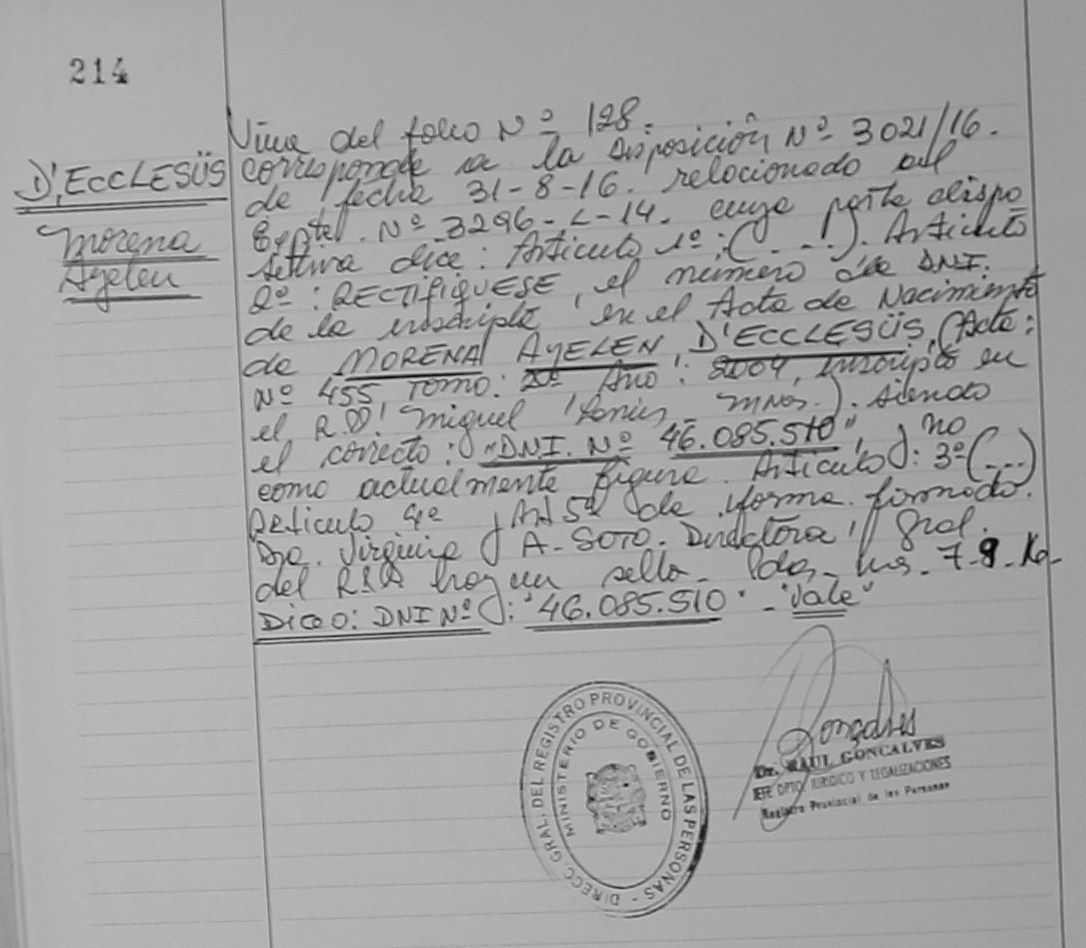 214
D'ECCLESÜS
Morena
Ayelen
Viene del folio Nº 128.
corresponde a la Disposición Nº 3021/16.
de fecha 31-8-16. relacionado al
Expte. Nº 3296-L-14. cuya parte dispo
sitiva dice: Articulo 1º: (....). Articulo
2º: RECTIFIQUESE, el número de DNI.
de la inscripta en el Acta de Nacimiento
de MORENA AYELEN D'ECCLESÜS, (Acta:
Nº 455 Tomo: 2º Año: 2004, inscripto en
el R.D! Miguel Mnes.). siendo
el correcto: "DNI. Nº 46.085.510", y no
como actualmente figura. Articulo: 3º (...)
Articulo 4º y Art 5º de forma. firmado.
Dra. Virginia A. SOTO. Directora Gral.
del hay un sello_ Pdas_ Mns_ 7-9_
Digo: DNI Nº: "46.085.510" - "Vale"
DIRECC. GRAL. DEL REGISTRO PROVINCIAL DE LAS PERSONAS -
MINISTERIO DE GOBIERNO
Gonçalves
Dr. RAUL GONCALVES
JEFE DPTO. JURIDICO Y LEGALIZACIONES
Registro Provincial de las Personas